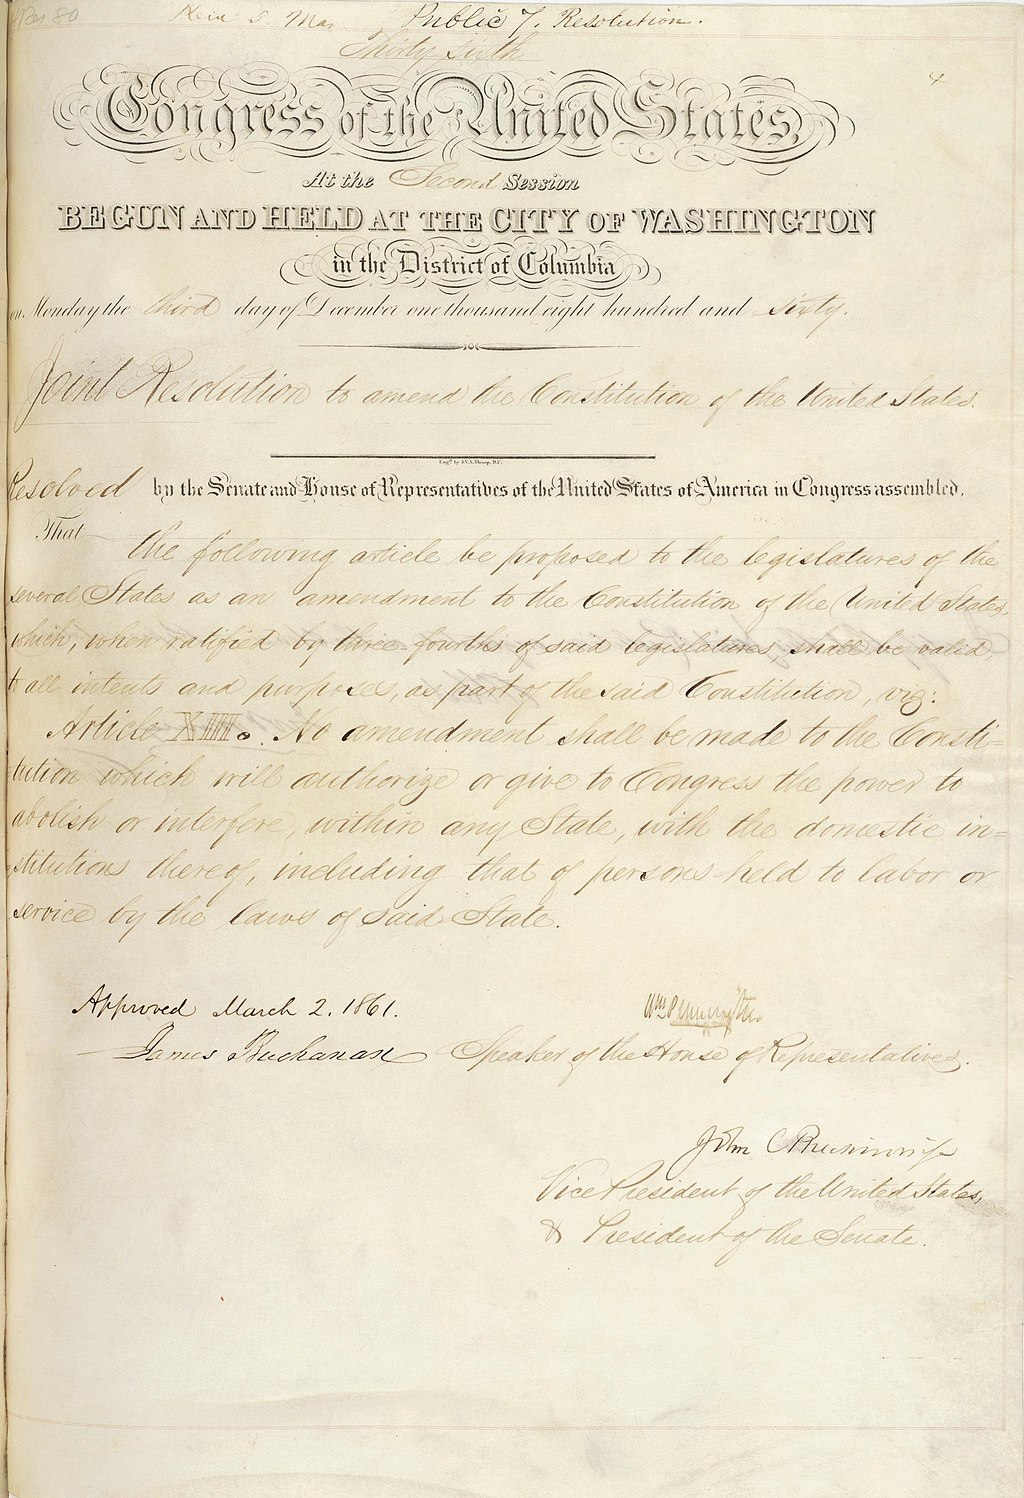 Public 7. Resolution.
Thirty Sixth
Congress of the United States,
At the Second Session
BEGUN AND HELD AT THE CITY OF WASHINGTON
in the District of Columbia
on Monday the third day of December one thousand eight hundred and sixty.
Joint Resolution to amend the Constitution of the United States.
Resolved by the Senate and House of Representatives of the United States of America in Congress assembled,
That
the following article be proposed to the legislatures of the
several States as an amendment to the Constitution of the United States,
which, when ratified by three-fourths of said legislatures, shall be valid,
to all intents and purposes, as part of the said Constitution, viz:
Article XIII. No amendment shall be made to the Consti=
tution which will authorize or give to Congress the power to
abolish or interfere, within any State, with the domestic in=
stitutions thereof, including that of persons held to labor or
service by the laws of said State.
Approved March 2. 1861.
James Buchanan
Wm Pennington
Speaker of the House of Representatives.
John C Breckinridge
Vice President of the United States,
& President of the Senate.